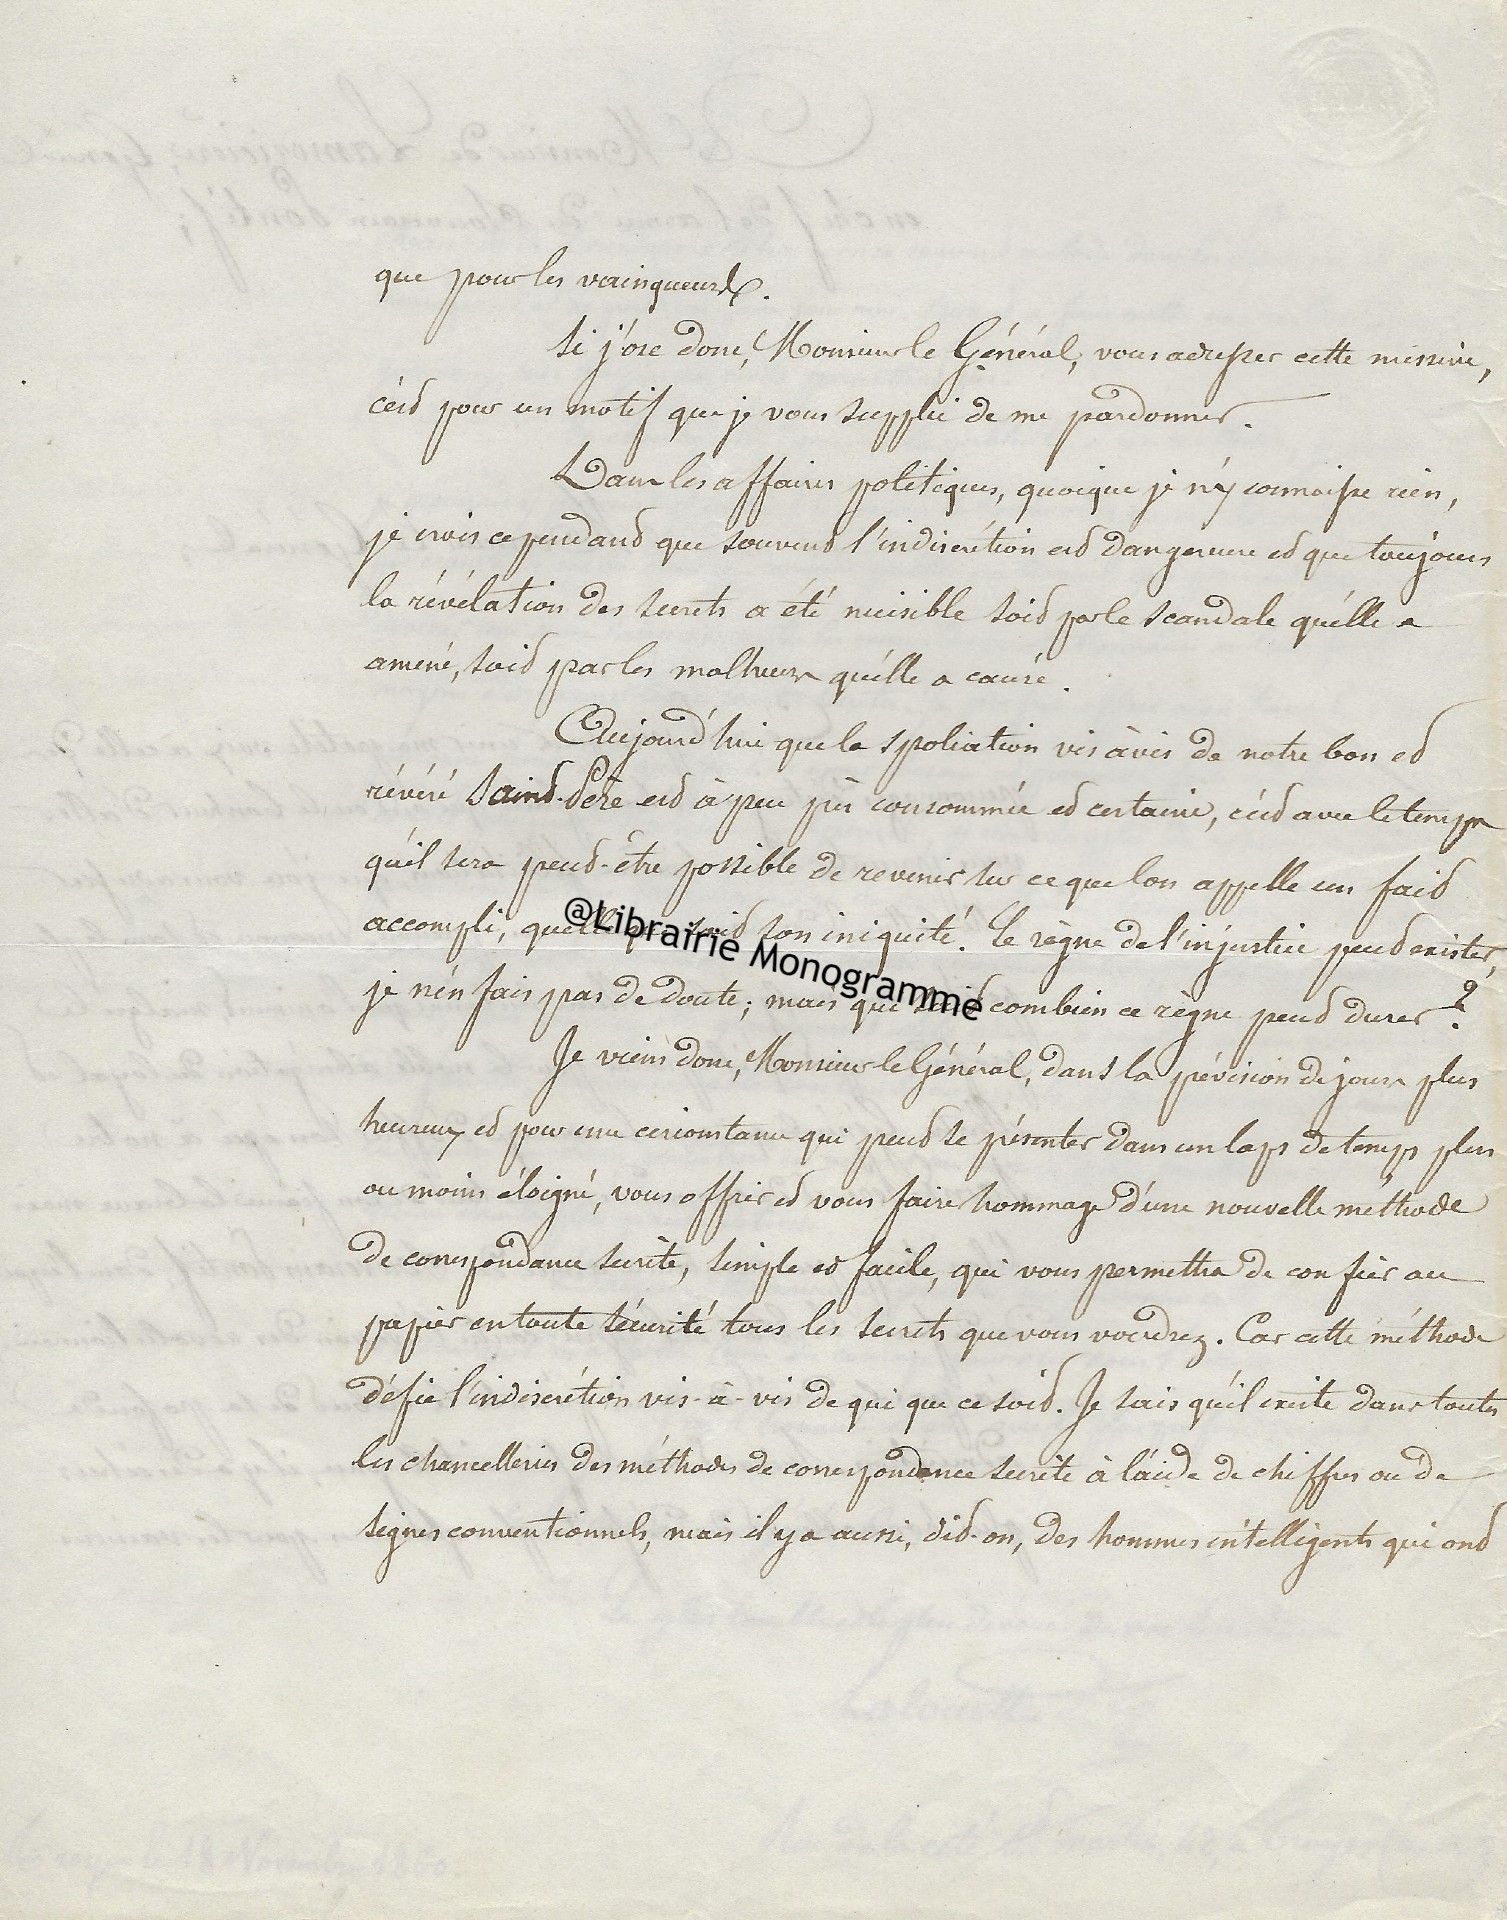 que pour les vainqueurs.
Si j'ose donc, Monsieur le Général, vous adresser cette missive,
c'est pour un motif que je vous supplie de me pardonner.
Dans les affaires politiques, quoique je n'y connaisse rien,
je crois cependant que souvent l'indiscrétion est dangereuse et que toujours
la révélation des secrets a été nuisible soit par le scandale qu'elle a
amené, soit par les malheurs qu'elle a causé.
Aujourd'hui que la spoliation vis à vis de notre bon et
révéré Saint-Père est à peu près consommée et certaine, c'est avec le temps
qu'il sera peut-être possible de revenir sur ce que l'on appelle un fait
accompli, quelle que soit son iniquité. Le règne de l'injustice peut exister,
je n'en fais pas de doute; mais qui sait combien ce règne peut durer?
Je viens donc, Monsieur le Général, dans la prévision de jours plus
heureux et pour une circonstance qui peut se présenter dans un laps de temps plus
ou moins éloigné, vous offrir et vous faire hommage d'une nouvelle méthode
de correspondance secrète, simple et facile, qui vous permettra de confier au
papier en toute sécurité tous les secrets que vous voudrez. Car cette méthode
défie l'indiscrétion vis-à-vis de qui que ce soit. Je sais qu'il existe dans toutes
les chancelleries des méthodes de correspondance secrète à l'aide de chiffres ou de
signes conventionnels, mais il y a aussi, dit-on, des hommes intelligents qui ont
@Librairie Monogramme